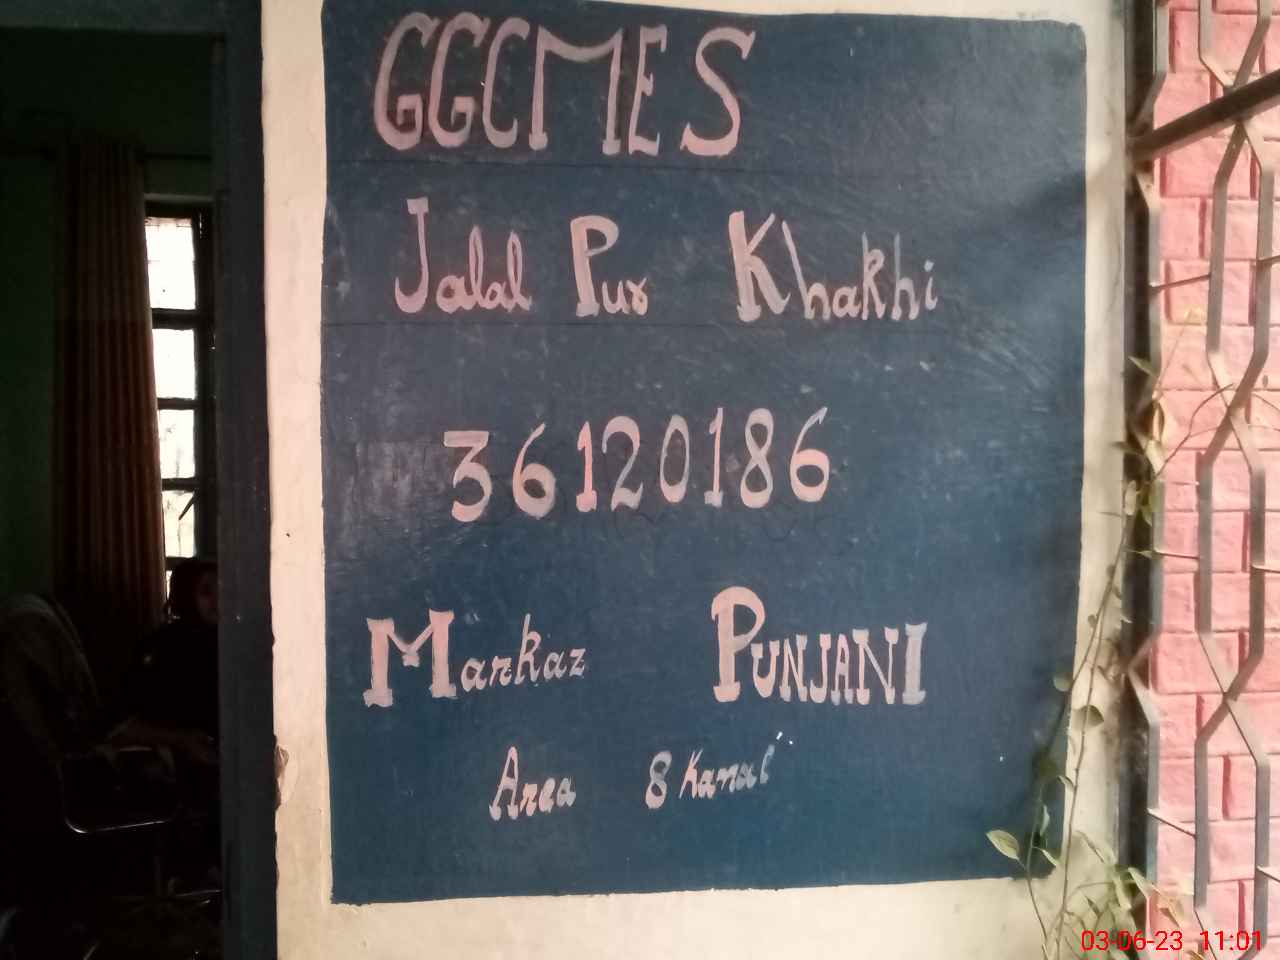 GGCMES
Jalal Pur Khakhi
36120186
Markaz PUNJANI
Area 8 Kanal
03-06-23 11:01